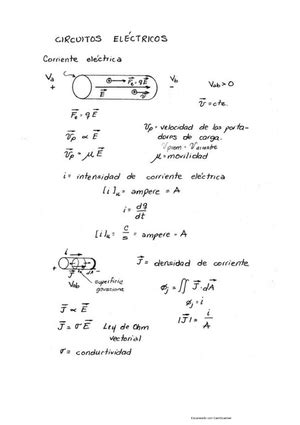 CIRCUITOS ELÉCTRICOS
Corriente eléctrica
Va + Vb - Vab > 0
F⃗e = qE⃗
E⃗
v⃗
v⃗ = cte.
F⃗e = qE⃗
v⃗p ∝ E⃗
v⃗p = velocidad de los portadores de carga.
v⃗p = μE⃗
μ = movilidad
i = intensidad de corriente eléctrica
[i]u = ampere = A
i = dq/dt
[i]u = C/s = ampere = A
J⃗ = densidad de corriente
Vab
superficie gaussiana
φj = ∬ J⃗ · dA⃗
φj = i
J⃗ ∝ E⃗
|J⃗| = i/A
J⃗ = σE⃗ Ley de Ohm
vectorial
σ = conductividad
Escaneado con CamScanner